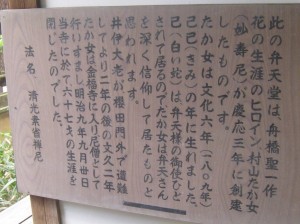 此の弁天堂は、舟橋聖一作
花の生涯のヒロイン村山たか女
（妙寿尼）が慶応三年に創建
したものです。
たか女は文化六年（一八〇九年）
己巳（きみ）の年に生れました。
己（白い蛇）は弁天様の御使ひと
されて居るのでたか女は弁天さん
を深く信仰して居たものと
思われます。
井伊大老が櫻田門外で遭難
してより二年の後の文久二年
たか女は金福寺に入り尼僧として
行いすまし明治九年九月卅日
当寺に於て六十七才の生涯を
閉じたのです。
法名 清光素省禅尼